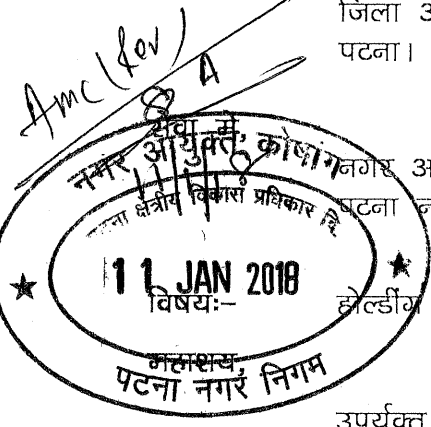 जिला अ
पटना।
Amc (Rev)
सेवा में,
नगर आयुक्त, कोषांग
नगर आ
क्षेत्रीय विकास प्रधिकार
पटना न
11 JAN 2018
विषयः–
होल्डींग
महाशय,
पटना नगर निगम
उपर्युक्त